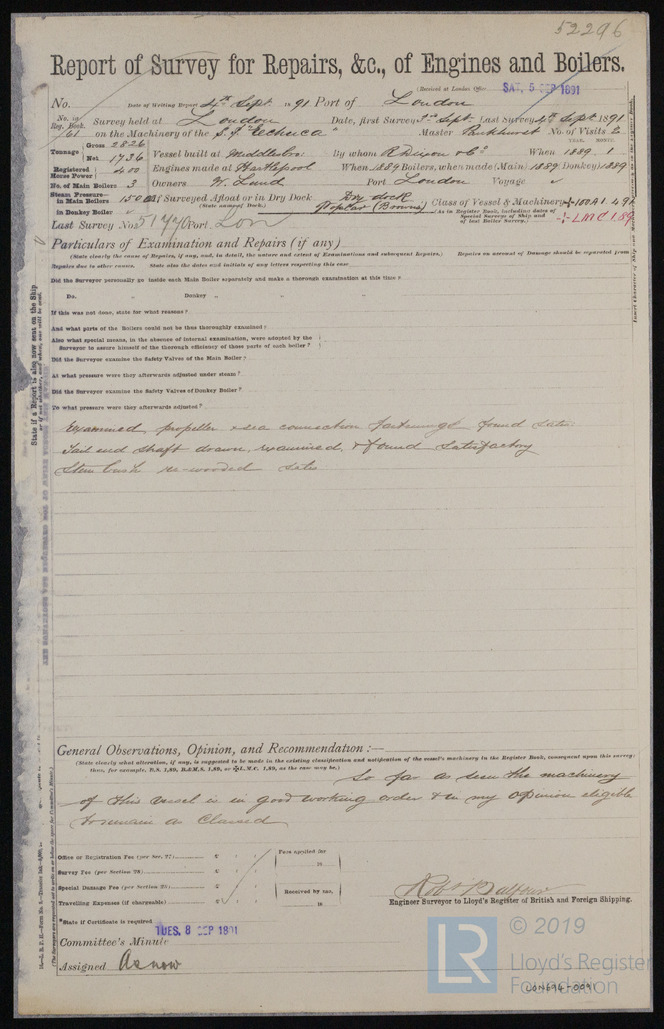 52296
Report of Survey for Repairs, &c., of Engines and Boilers.
(Received at London Office SAT, 5 SEP 1891
No. Date of Writing Report 4th Sept 1891 Port of London
No. in Reg. Book. 161 Survey held at London Date, first Survey 3rd Sept. Last Survey 4th Sept 1891
on the Machinery of the S.S. Master No. of Visits 2
Tonnage Gross 2826 Net 1736 Vessel built at Middlesbro: By whom R Dixon & Co When 1889 1
Registered Horse Power 400 Engines made at Hartlepool When 1889 Boilers, when made (Main) 1889 (Donkey) 1889
No. of Main Boilers 3 Owners W. Lund Port London Voyage
Steam Pressure— in Main Boilers 150 If Surveyed Afloat or in Dry Dock Dry dock Class of Vessel & Machinery 100A1
in Donkey Boiler (State name of Dock.) Poplar (as in Register Book, including dates of Special Surveys of Ship and of last Boiler Survey.) LMC 1.89
Last Survey No. Port Lon
Particulars of Examination and Repairs (if any)
(State clearly the cause of Repairs, if any, and, in detail, the nature and extent of Examinations and subsequent Repairs.) Repairs on account of Damage should be separated from
Repairs due to other causes. State also the dates and initials of any letters respecting this case.
Did the Surveyor personally go inside each Main Boiler separately and make a thorough examination at this time?
Do. „ Donkey „ „
If this was not done, state for what reasons?
And what parts of the Boilers could not be thus thoroughly examined?
Also what special means, in the absence of internal examination, were adopted by the
Surveyor to assure himself of the thorough efficiency of those parts of each boiler?
Did the Surveyor examine the Safety Valves of the Main Boiler?
At what pressure were they afterwards adjusted under steam?
Did the Surveyor examine the Safety Valves of Donkey Boiler?
To what pressure were they afterwards adjusted?
Examined propeller & sea connection fastenings found satis:
Tail end shaft drawn, examined, & found satisfactory
Stern bush re-wooded satis
General Observations, Opinion, and Recommendation:—
(State clearly what alteration, if any, is suggested to be made in the existing classification and notification of the vessel's machinery in the Register Book, consequent upon this survey:
thus, for example, B.S. 1,89, B.&M.S. 1,89, or L.M.C. 1,89, as the case may be.)
So far as seen the machinery
of this vessel is in good working order & in my opinion eligible
to remain as Classed
Office or Registration Fee (per Sec. 27) £
Survey Fee (per Section 28) £
Special Damage Fee (per Section 28) £
Travelling Expenses (if chargeable) £
Fees applied for
18
Received by me,
18
Robt Balfour
Engineer Surveyor to Lloyd's Register of British and Foreign Shipping.
*State if Certificate is required
Committee's Minute TUES. 8 SEP 1891
Assigned As now
State if a Report is also now sent on the Ship
© 2019
LR
Lloyd's Register
Foundation
LON694-0091